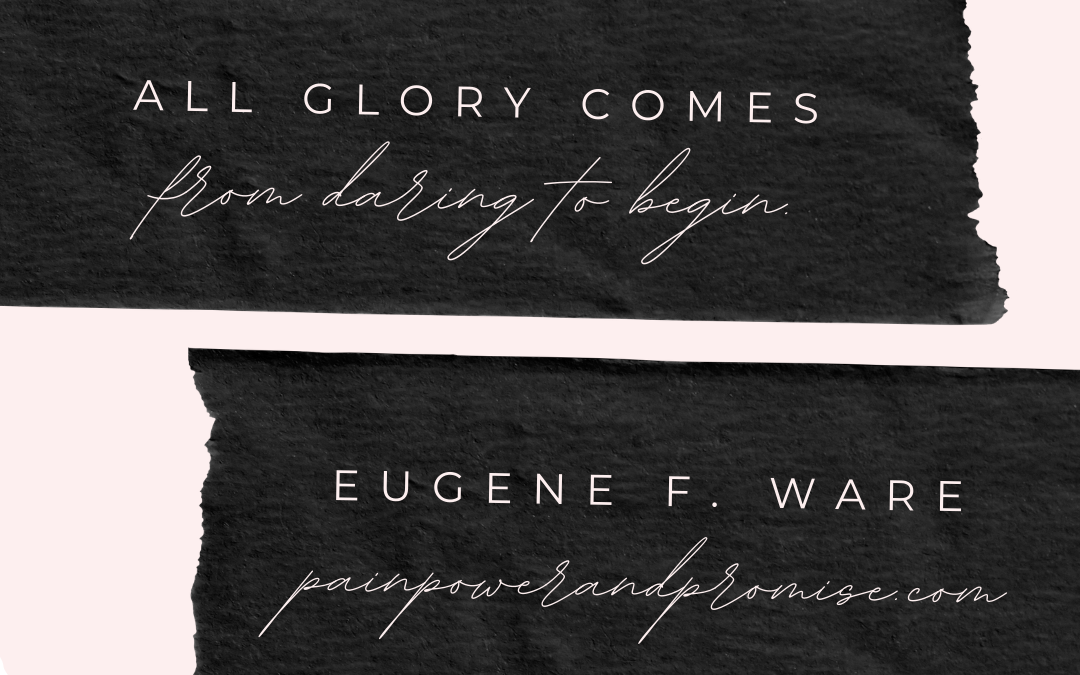 ALL GLORY COMES
from daring to begin.
EUGENE F. WARE
painpowerandpromise.com